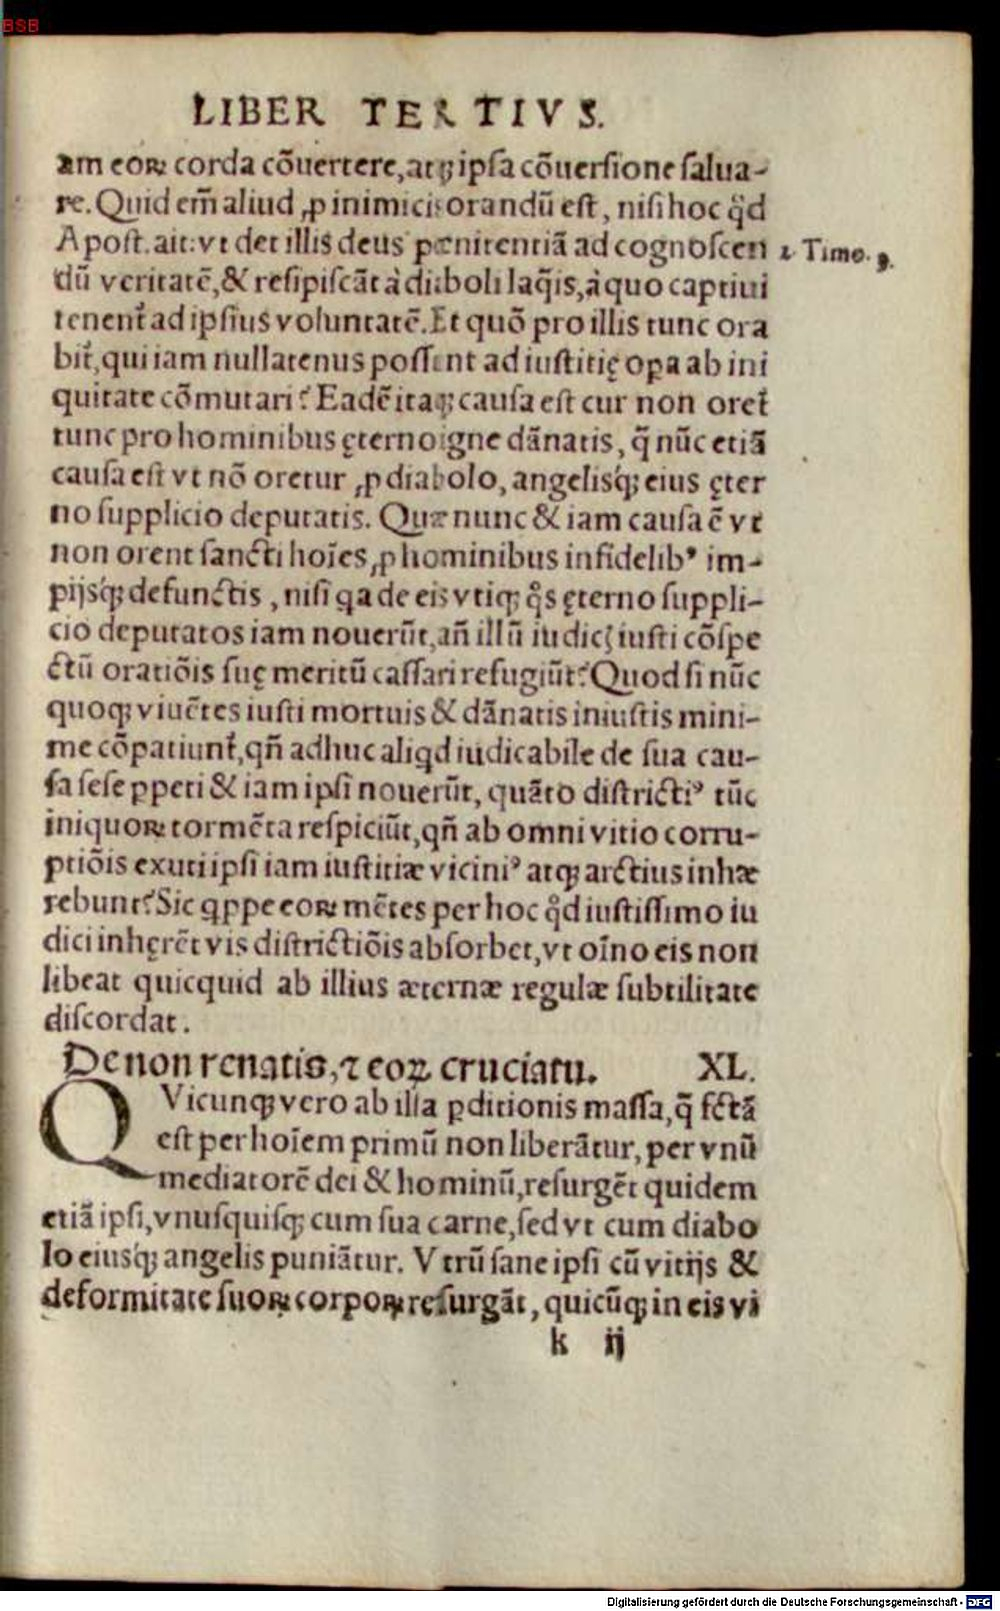 BSB
LIBER TERTIVS.
am eoꝝ corda cõuertere, atqꝫ ipsa cõuersione salua-
re. Quid em̃ aliud ꝓ inimicis orandũ est, nisi hoc qd̃
Apost. ait: vt det illis deus pœnitentiã ad cognoscen
dũ veritatẽ, & resipiscãt à diaboli laq̃is, à quo captiui
tenent᷑ ad ipsius voluntatẽ. Et quõ pro illis tunc ora
bit᷑, qui iam nullatenus possent ad iustitię oꝑa ab ini
quitate cõmutari? Eadẽ itaqꝫ causa est cur non oret᷑
tunc pro hominibus ęterno igne dãnatis, q̃ nũc etiã
causa est vt nõ oretur ꝓ diabolo, angelisqꝫ eius ęter
no supplicio deputatis. Quæ nunc & iam causa ẽ vt
non orent sancti hoĩes ꝓ hominibus infidelibꝰ im-
pijsqꝫ defunctis, nisi ꝗa de eis vtiqꝫ q̊s ęterno suppli-
cio deputatos iam nouerũt, añ illũ iudicꝭ iusti cõspe
ctũ oratiõis suę meritũ cassari refugiũt? Quod si nũc
quoqꝫ viuẽtes iusti mortuis & dãnatis iniustis mini-
me cõpatiunt᷑, qñ adhuc aliꝗd iudicabile de sua cau-
sa sese ꝑpeti & iam ipsi nouerũt, quãto districtiꝰ tũc
iniquoꝝ tormẽta respiciũt, qñ ab omni vitio corru-
ptiõis exuti ipsi iam iustitiæ viciniꝰ atqꝫ arctius inhæ
rebunt? Sic ꝗppe eoꝝ mẽtes per hoc qd̃ iustissimo iu
dici inhęrẽt vis districtiõis absorbet, vt oĩno eis non
libeat quicquid ab illius æternæ regulæ subtilitate
discordat.
De non renatis, ⁊ eoꝝ cruciatu. XL.
QVicunqꝫ vero ab illa ꝑditionis massa, q̃ fctã
est per hoĩem primũ non liberãtur, per vnũ
mediatorẽ dei & hominũ, resurgẽt quidem
etiã ipsi, vnusquisqꝫ cum sua carne, sed vt cum diabo
lo eiusqꝫ angelis puniãtur. Vtrũ sane ipsi cũ vitijs &
deformitate suoꝝ corpoꝝ resurgãt, quicũqꝫ in eis vi
k ij
2. Timo.
Digitalisierung gefördert durch die Deutsche Forschungsgemeinschaft - DFG